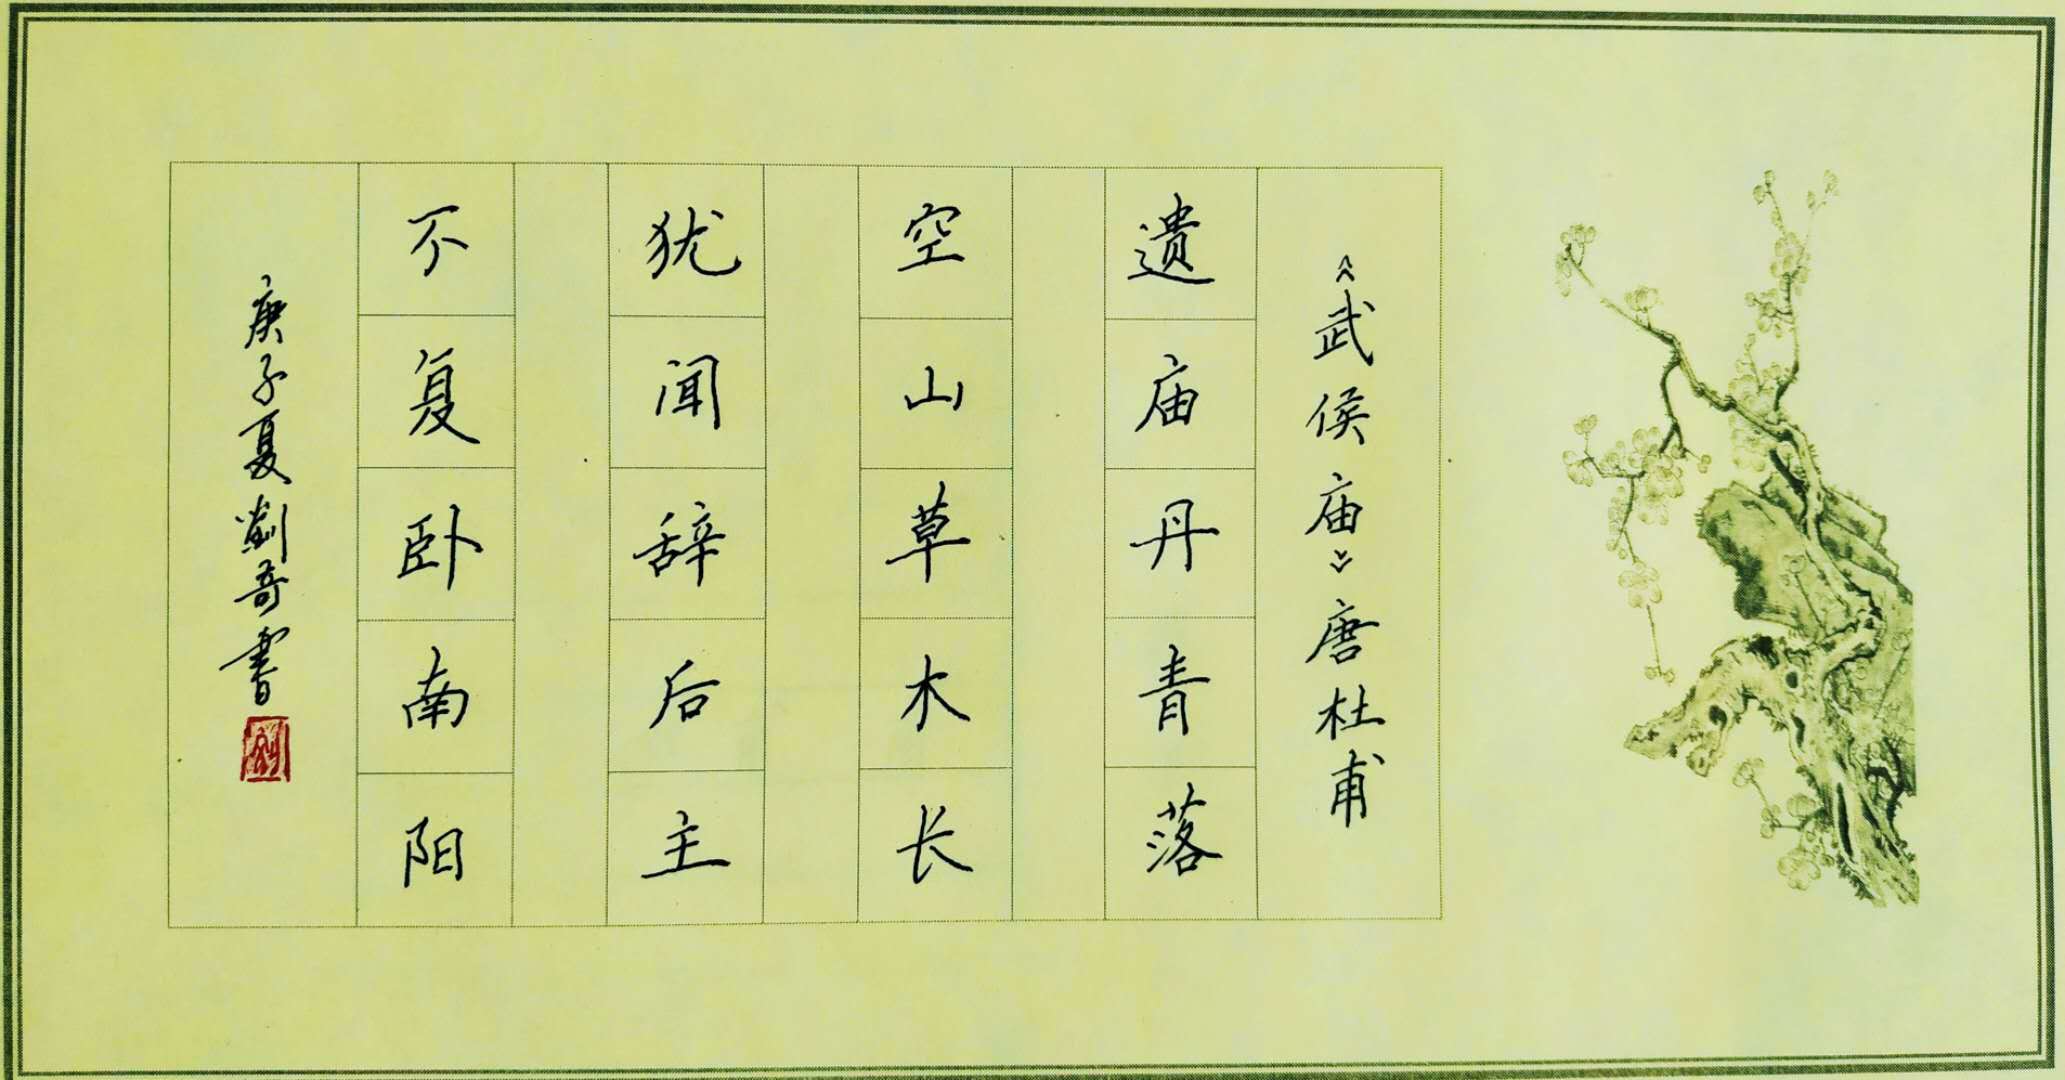 《武侯庙》唐杜甫
遗庙丹青落
空山草木长
犹闻辞后主
不复卧南阳
庚子夏劉奇書